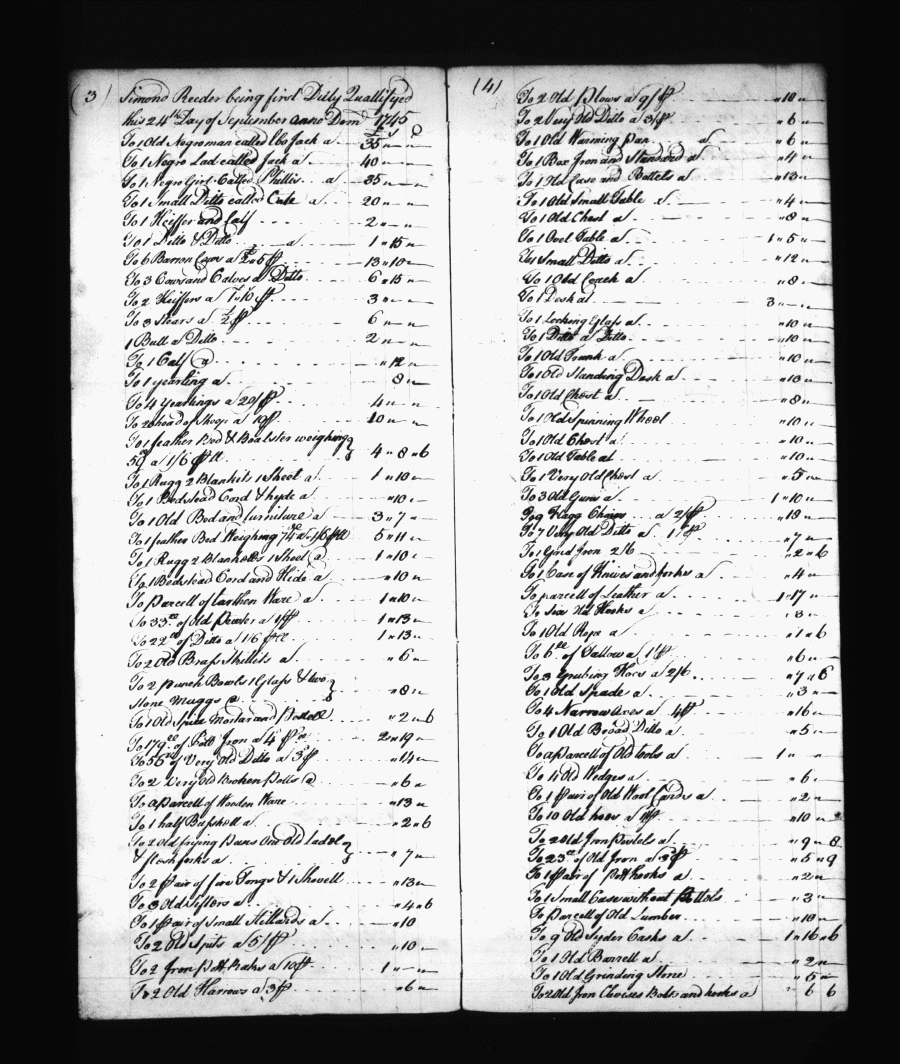 (3)
Simond Reeder being first Dully Quallifyed
this 24th Day of September anno Dom 1745
£ S D
To 1 Old Negro man called Jack a 35 " — " —
To 1 Negro Lad called Jack a 40 " — " —
To 1 Negro Girl Called Phillis a 35 " — " —
To 1 Small Ditto called Cate a 20 " — " —
To 1 Heiffer and Calf 2 " — " —
To 1 Ditto & Ditto a 1 " 15 " —
To 6 Barron Cows a £2"5 pr 13 " 10 " —
To 3 Cows and Calves a Ditto 6 " 15 " —
To 2 Heiffers a 1"10 pr 3 " — " —
To 3 Stears a £2 pr 6 " — " —
1 Bull a Ditto 2 " — " —
To 1 Calf @ " 12 " —
To 1 yearling a 8 " —
To 4 yearlings a 20/ pr 4 " — " —
To 20 head of Sheep a 10/ pr 10 " — " —
To 1 feather Bed & Boalster weighing
59 a 1/6 pr lb 4 " 8 " 6
To 1 Rugg 2 Blankits 1 Sheet a 1 " 10 " —
To 1 Bedstead Cord & hyde a " 10 " —
To 1 Old Bed and furniture a 3 " 7 " —
To 1 feather Bed Weighing 74 a 1/6 pr lb 5 " 11 " —
To 1 Rugg 2 Blanketts 1 Sheet @ 1 " 10 " —
To 1 Bedstead Cord and Hide a " 10 " —
To Parcell of Earthen Ware a 1 " 10 " —
To 33 lb of Old Pewter a 1/ pr 1 " 13 " —
To 22 lb of Ditto a 1/6 pr lb 1 " 13 " —
To 2 Old Brass Skillits a " 6 " —
To 2 Punch Bowls 1 Glass & two
Stone Muggs @ " 8 " —
To 1 Old Spice Mortar and Pestell " 2 " 6
To 179 lb of Pott Iron a 4d pr lb 2 " 19 " —
To 56 lb of Very Old Ditto a 3d pr " 14 " —
To 2 Very Old Broken Potts @ " 6 " —
To a Parcell of Wooden Ware " 13 " —
To 1 half Bushell a " 2 " 6
To 2 Old frying Pans One Old Ladel
& flesh forks a " 7 " —
To 2 Pair of fire Tongs & 1 Shovell " 13 " —
To 3 Old Sifters a " 4 " 6
To 1 Pair of Small Stillards a " 10
To 2 Old Spits a 5/ pr " 10 " —
To 2 Iron Pott Racks a 10/ pr 1 " — " —
To 2 Old Harrows a 3/ pr " 6 " —
(4)
To 2 Old Plows a 9/ pr " 18 " —
To 2 Very Old Ditto a 3/ pr " 6 " —
To 1 Old Warming Pan a " 6 " —
To 1 Box Iron and Standard a " 4 " —
To 1 Old Case and Bottels a " 13 " —
To 1 Old Small Table a " 4 " —
To 1 Old Chest a " 8 " —
To 1 Ovel Table a 1 " 5 " —
To 1 Small Ditto a " 12 " —
To 1 Old Couch a " 8 " —
To 1 Desk at 3 " — " —
To 1 Looking Glass a " 10 " —
To 1 Ditto a Ditto " 10 " —
To 1 Old Trunk a " 10 " —
To 1 Old Standing Desk a " 13 " —
To 1 Old Chest a " 8 " —
To 1 Old Spinning Wheel " 10 " —
To 1 Old Chest a " 10 " —
To 1 Old Table at " 10 " —
To 1 Very Old Chest a " 5 " —
To 3 Old Guns a 1 " 10 " —
To 9 Flagg Chairs a 2/ pr " 18 " —
To 7 Very Old Ditto a 1/ pr " 7 " —
To 1 Grid Iron 2/6 " 2 " 6
To 1 Case of Knives and forks a " 4 " —
To parcell of Leather a 1 " 17 " —
To Six Old Hooks a " 3 " —
To 1 Old Rope a " 1 " 6
To 6 lb of Tallow a 1/ pr " 6 " —
To 3 Grubing Hoes a 2/6 " 7 " 6
To 1 Old Spade a " 3 " —
To 4 Narrow Axes a 4/ pr " 16 " —
To 1 Old Broad Ditto a " 5 " —
To a Parcell of Old tools a 1 " — " —
To 4 Old Wedges a " 6 " —
To 1 Pair of Old Wool Cards a " 2 " —
To 10 Old hoes a 1/ pr " 10 " —
To 2 Old Iron Pestels a " 9 " 8
To 23 lb of Old Iron a 3d pr " 5 " 9
To 1 Pair of Pott hooks a " 2 " —
To 1 Small Case without Bottols " 3 " —
To Parcell of Old Lumber " 10 " —
To 9 Old Syder Casks a 1 " 16 " 6
To 1 Old Barrell a " 2 " —
To 1 Old Grinding Stone " 5 " —
To 2 Old Iron Clevises Bolts and hooks a " 6 6